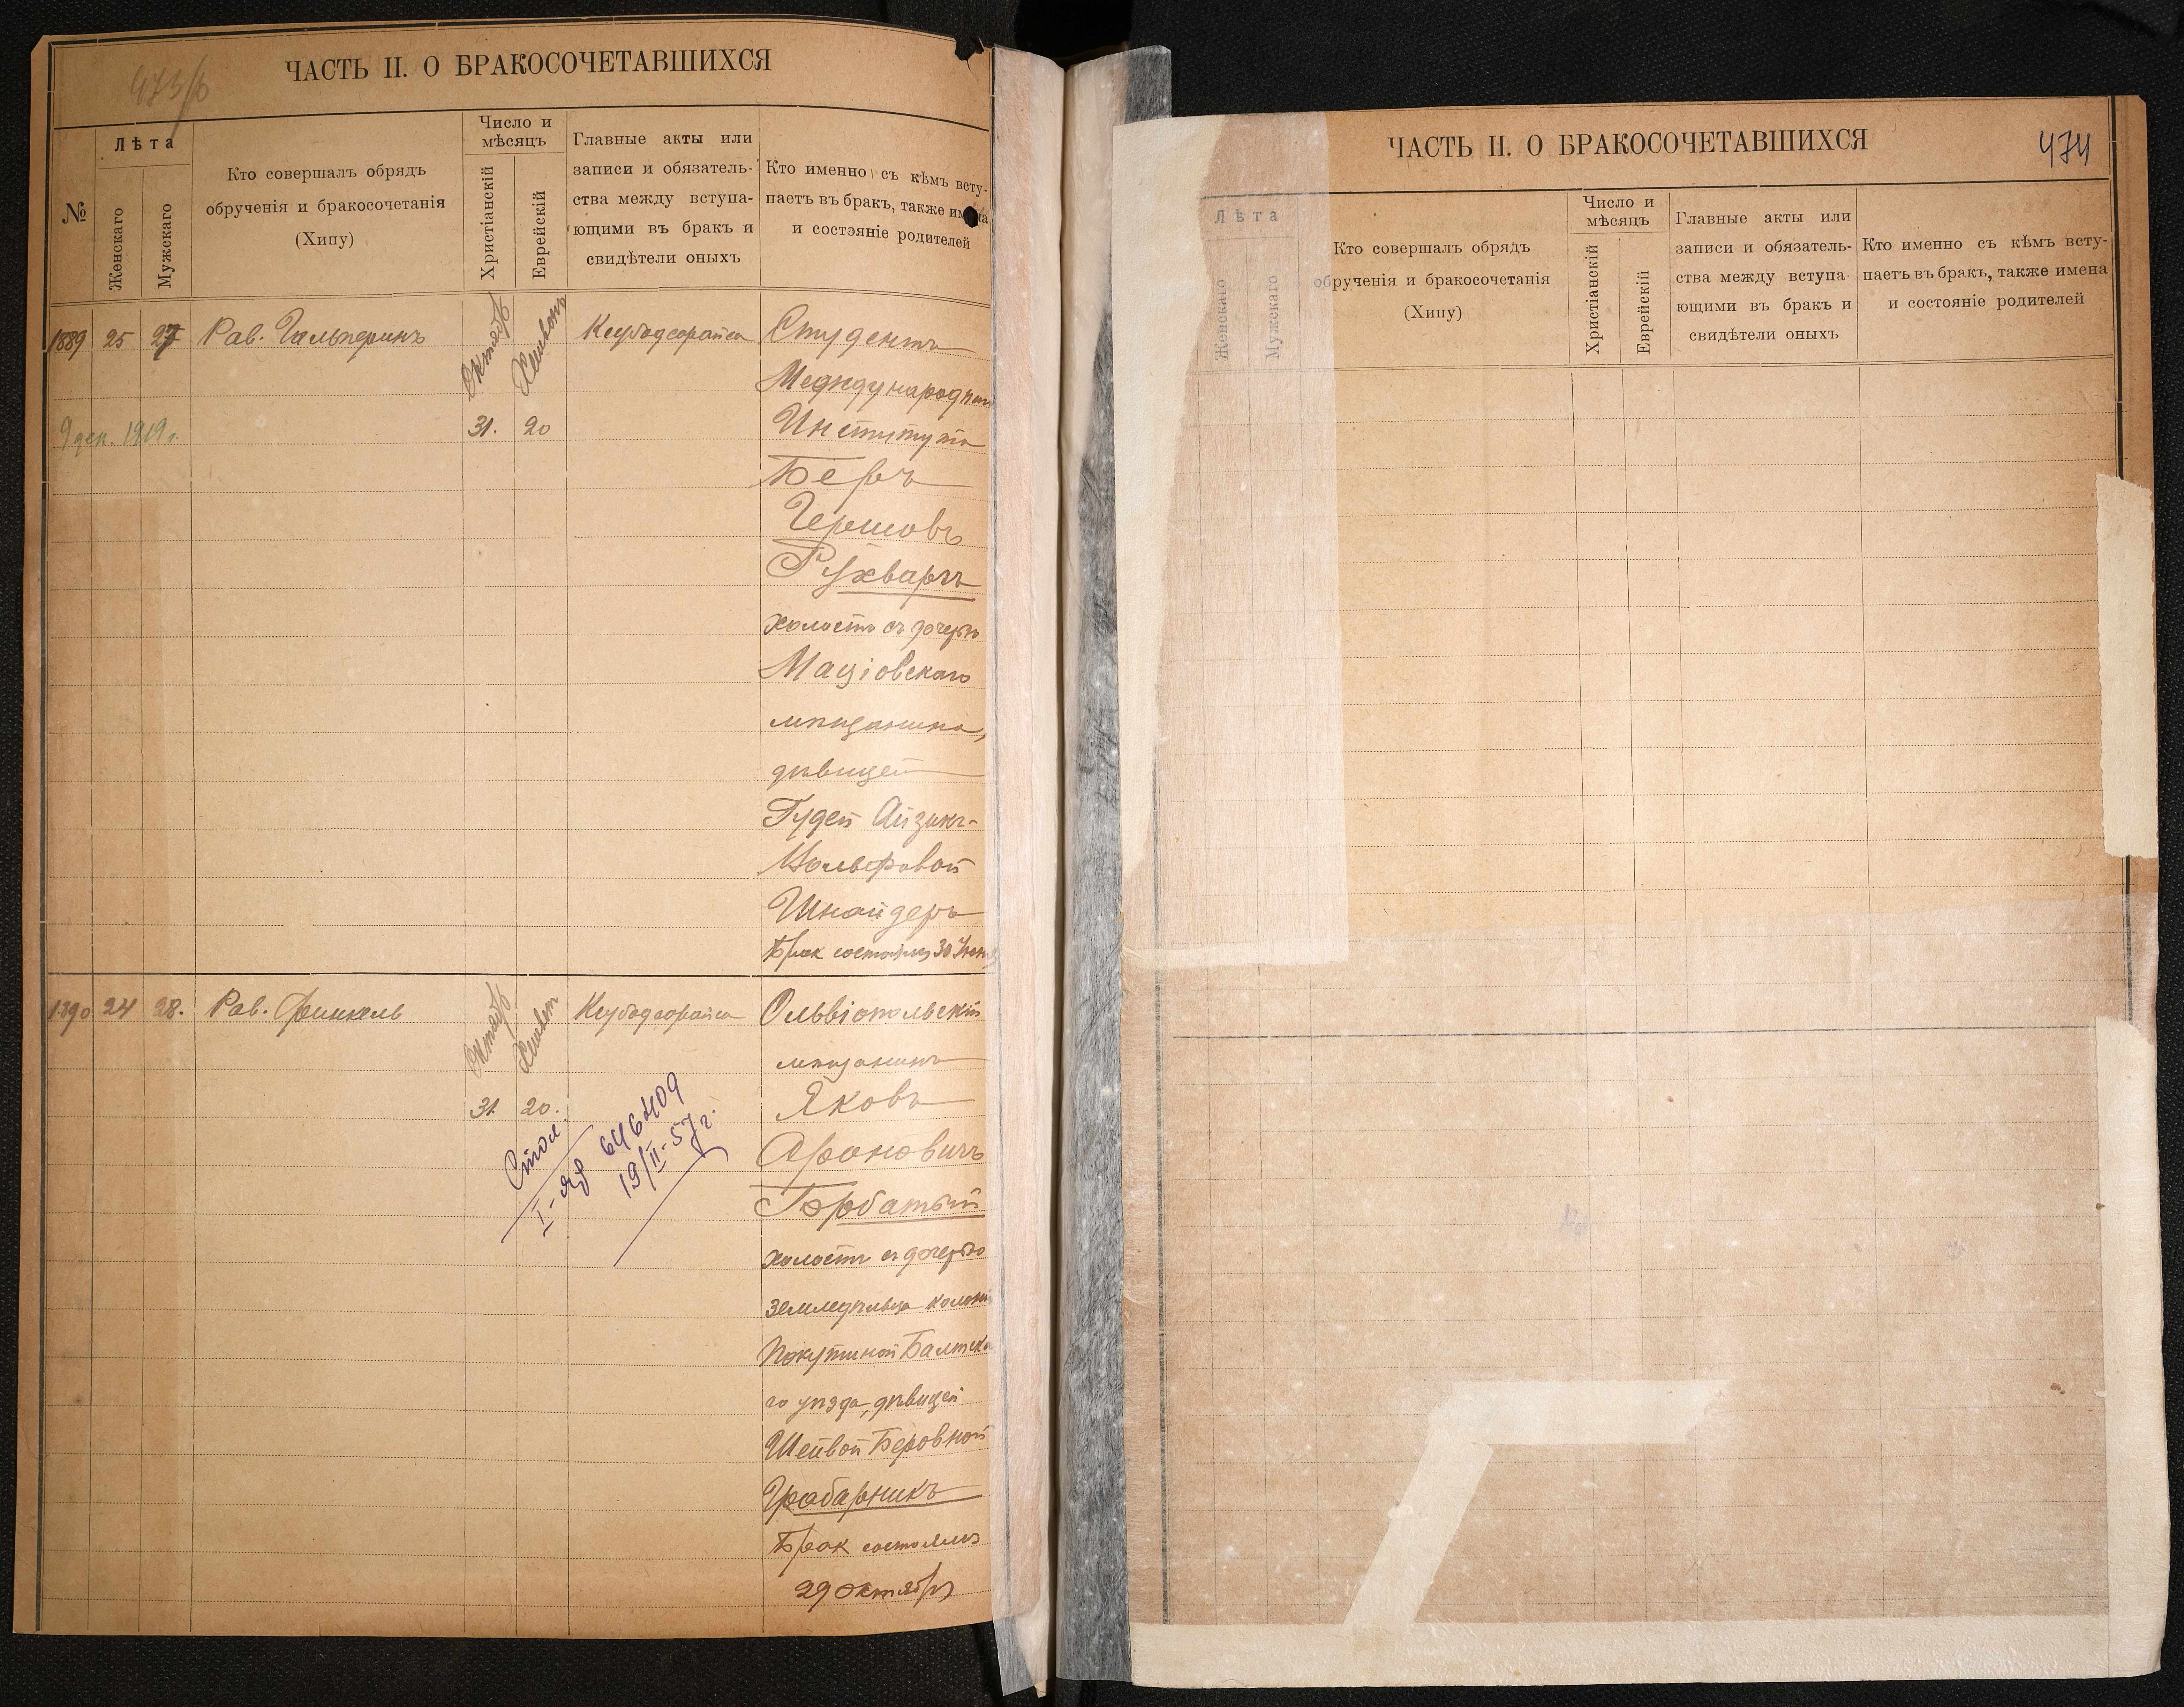 473/б
ЧАСТЬ II. О БРАКОСОЧЕТАВШИХСЯ
№
Лѣта
Женскаго
Мужскаго
Кто совершалъ обрядъ
обрученія и бракосочетанія
(Хипу)
Число и
мѣсяцъ
Христіанскій
Еврейскій
Главные акты или
записи и обязатель-
ства между вступа-
ющими въ бракъ и
свидѣтели оныхъ
Кто именно съ кѣмъ всту-
паетъ въ бракъ, также имена
и состояніе родителей
1889 25 27 Рав. Гальперинъ
Октябр Хешвонъ
31. 20
9 дек. 1919 г.
Студентъ
Международн
Института
Беръ
Гершовъ
Рухваргъ
холостъ съ дочерью
Маціовскаго
мѣщанина,
дѣвицей
Гудей Айзикъ-
Вольфовой
Шнайдеръ
Брак состоялся 30 Июня
1890 24 28. Рав. Финкель
Октябр Хешвон
31. 20.
Стол.
I-ЯД 646409
19/II-57 г.
Ольвіопольскій
мѣщанинъ
Яковъ
Ароновичъ
Горбатый
холостъ съ дочерью
земледѣльца колон
Покутиной Балтска
го уѣзда, дѣвицей
Шейвой Беровной
Грабарникъ
Брак состоялся
29 октября
474
ЧАСТЬ II. О БРАКОСОЧЕТАВШИХСЯ
Лѣта
Женскаго
Мужскаго
Кто совершалъ обрядъ
обрученія и бракосочетанія
(Хипу)
Число и
мѣсяцъ
Христіанскій
Еврейскій
Главные акты или
записи и обязатель-
ства между вступа-
ющими въ бракъ и
свидѣтели оныхъ
Кто именно съ кѣмъ всту-
паетъ въ бракъ, также имена
и состояніе родителей